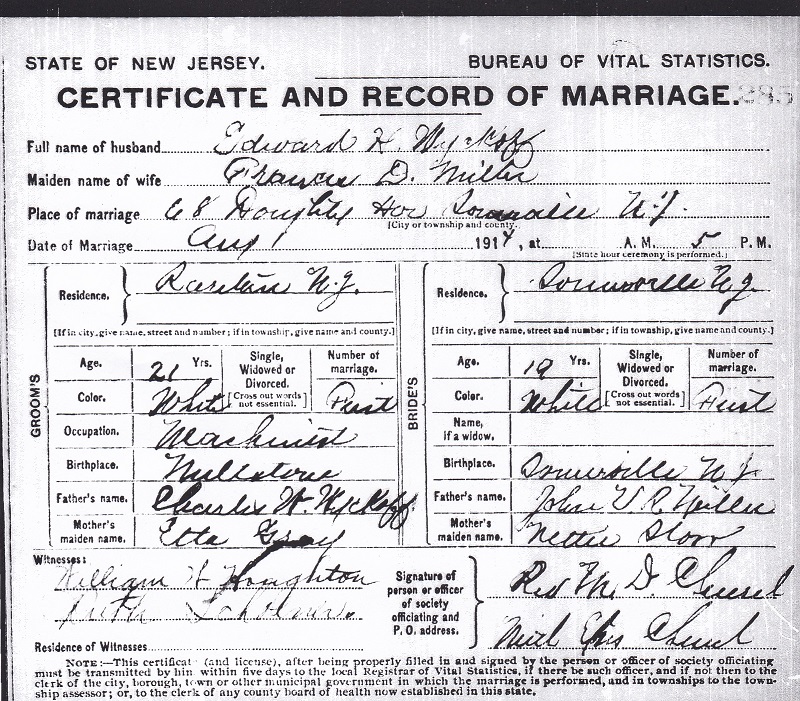 STATE OF NEW JERSEY. BUREAU OF VITAL STATISTICS.
CERTIFICATE AND RECORD OF MARRIAGE. 285
Full name of husband Edward H. Wyckoff
Maiden name of wife Frances D. Miller
Place of marriage 68 Doughty Ave Somerville N.J.
(City or township and county.)
Date of Marriage Aug 1 1914, at A. M. 5 P. M.
[State hour ceremony is performed.]
GROOM'S
Residence. Raritan N.J.
[If in city, give name, street and number; if in township, give name and county.]
Age. 21 Yrs. Single, Widowed or Divorced. [Cross out words not essential.] Number of marriage.
Color. White First
Occupation. Machinist
Birthplace. Millstone
Father's name. Charles W. Wyckoff
Mother's maiden name. Etta Gray
BRIDE'S
Residence. Somerville N.J.
[If in city, give name, street and number; if in township, give name and county.]
Age. 19 Yrs. Single, Widowed or Divorced. [Cross out words not essential.] Number of marriage.
Color. White First
Name, if a widow.
Birthplace. Somerville N.J.
Father's name. John V. R. Miller
Mother's maiden name. Nettie
Witnesses:
William H Houghton
Ruth
Residence of Witnesses
Signature of person or officer of society officiating and P. O. address.
Rev D. Church
Meth Epis Church
NOTE:—This certificate (and license), after being properly filled in and signed by the person or officer of society officiating
must be transmitted by him within five days to the local Registrar of Vital Statistics, if there be such officer, and if not then to the
clerk of the city, borough, town or other municipal government in which the marriage is performed, and in townships to the town-
ship assessor; or, to the clerk of any county board of health now established in this state.